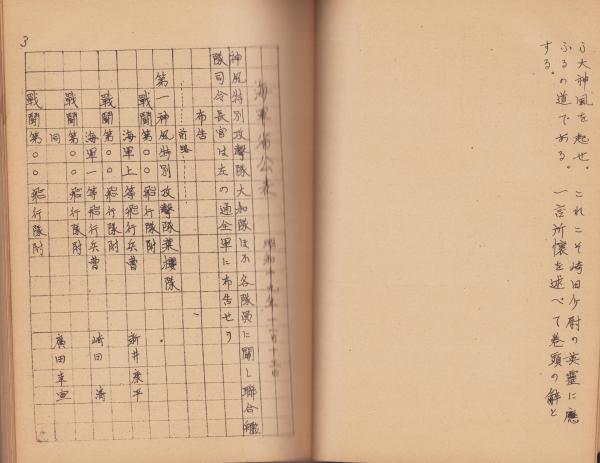 ふ大神風を起せ。これこそ崎田少尉の英靈に應
ふるの道である。一言所懷を述べて巻頭の辭と
する。
海軍省公表
昭和十九年十一月十三日
神風特別攻擊隊大和隊ほか各隊員に關し聯合艦
隊司令長官は左の通全軍に布告せり
布告
前略
第一神風特別攻擊隊葉櫻隊
戰鬪第〇〇飛行隊附
海軍上等飛行兵曹 新井康平
戰鬪第〇〇飛行隊附
海軍一等飛行兵曹 崎田 清
戰鬪第〇〇飛行隊附
同 廣田幸宣
戰鬪第〇〇飛行隊附
3